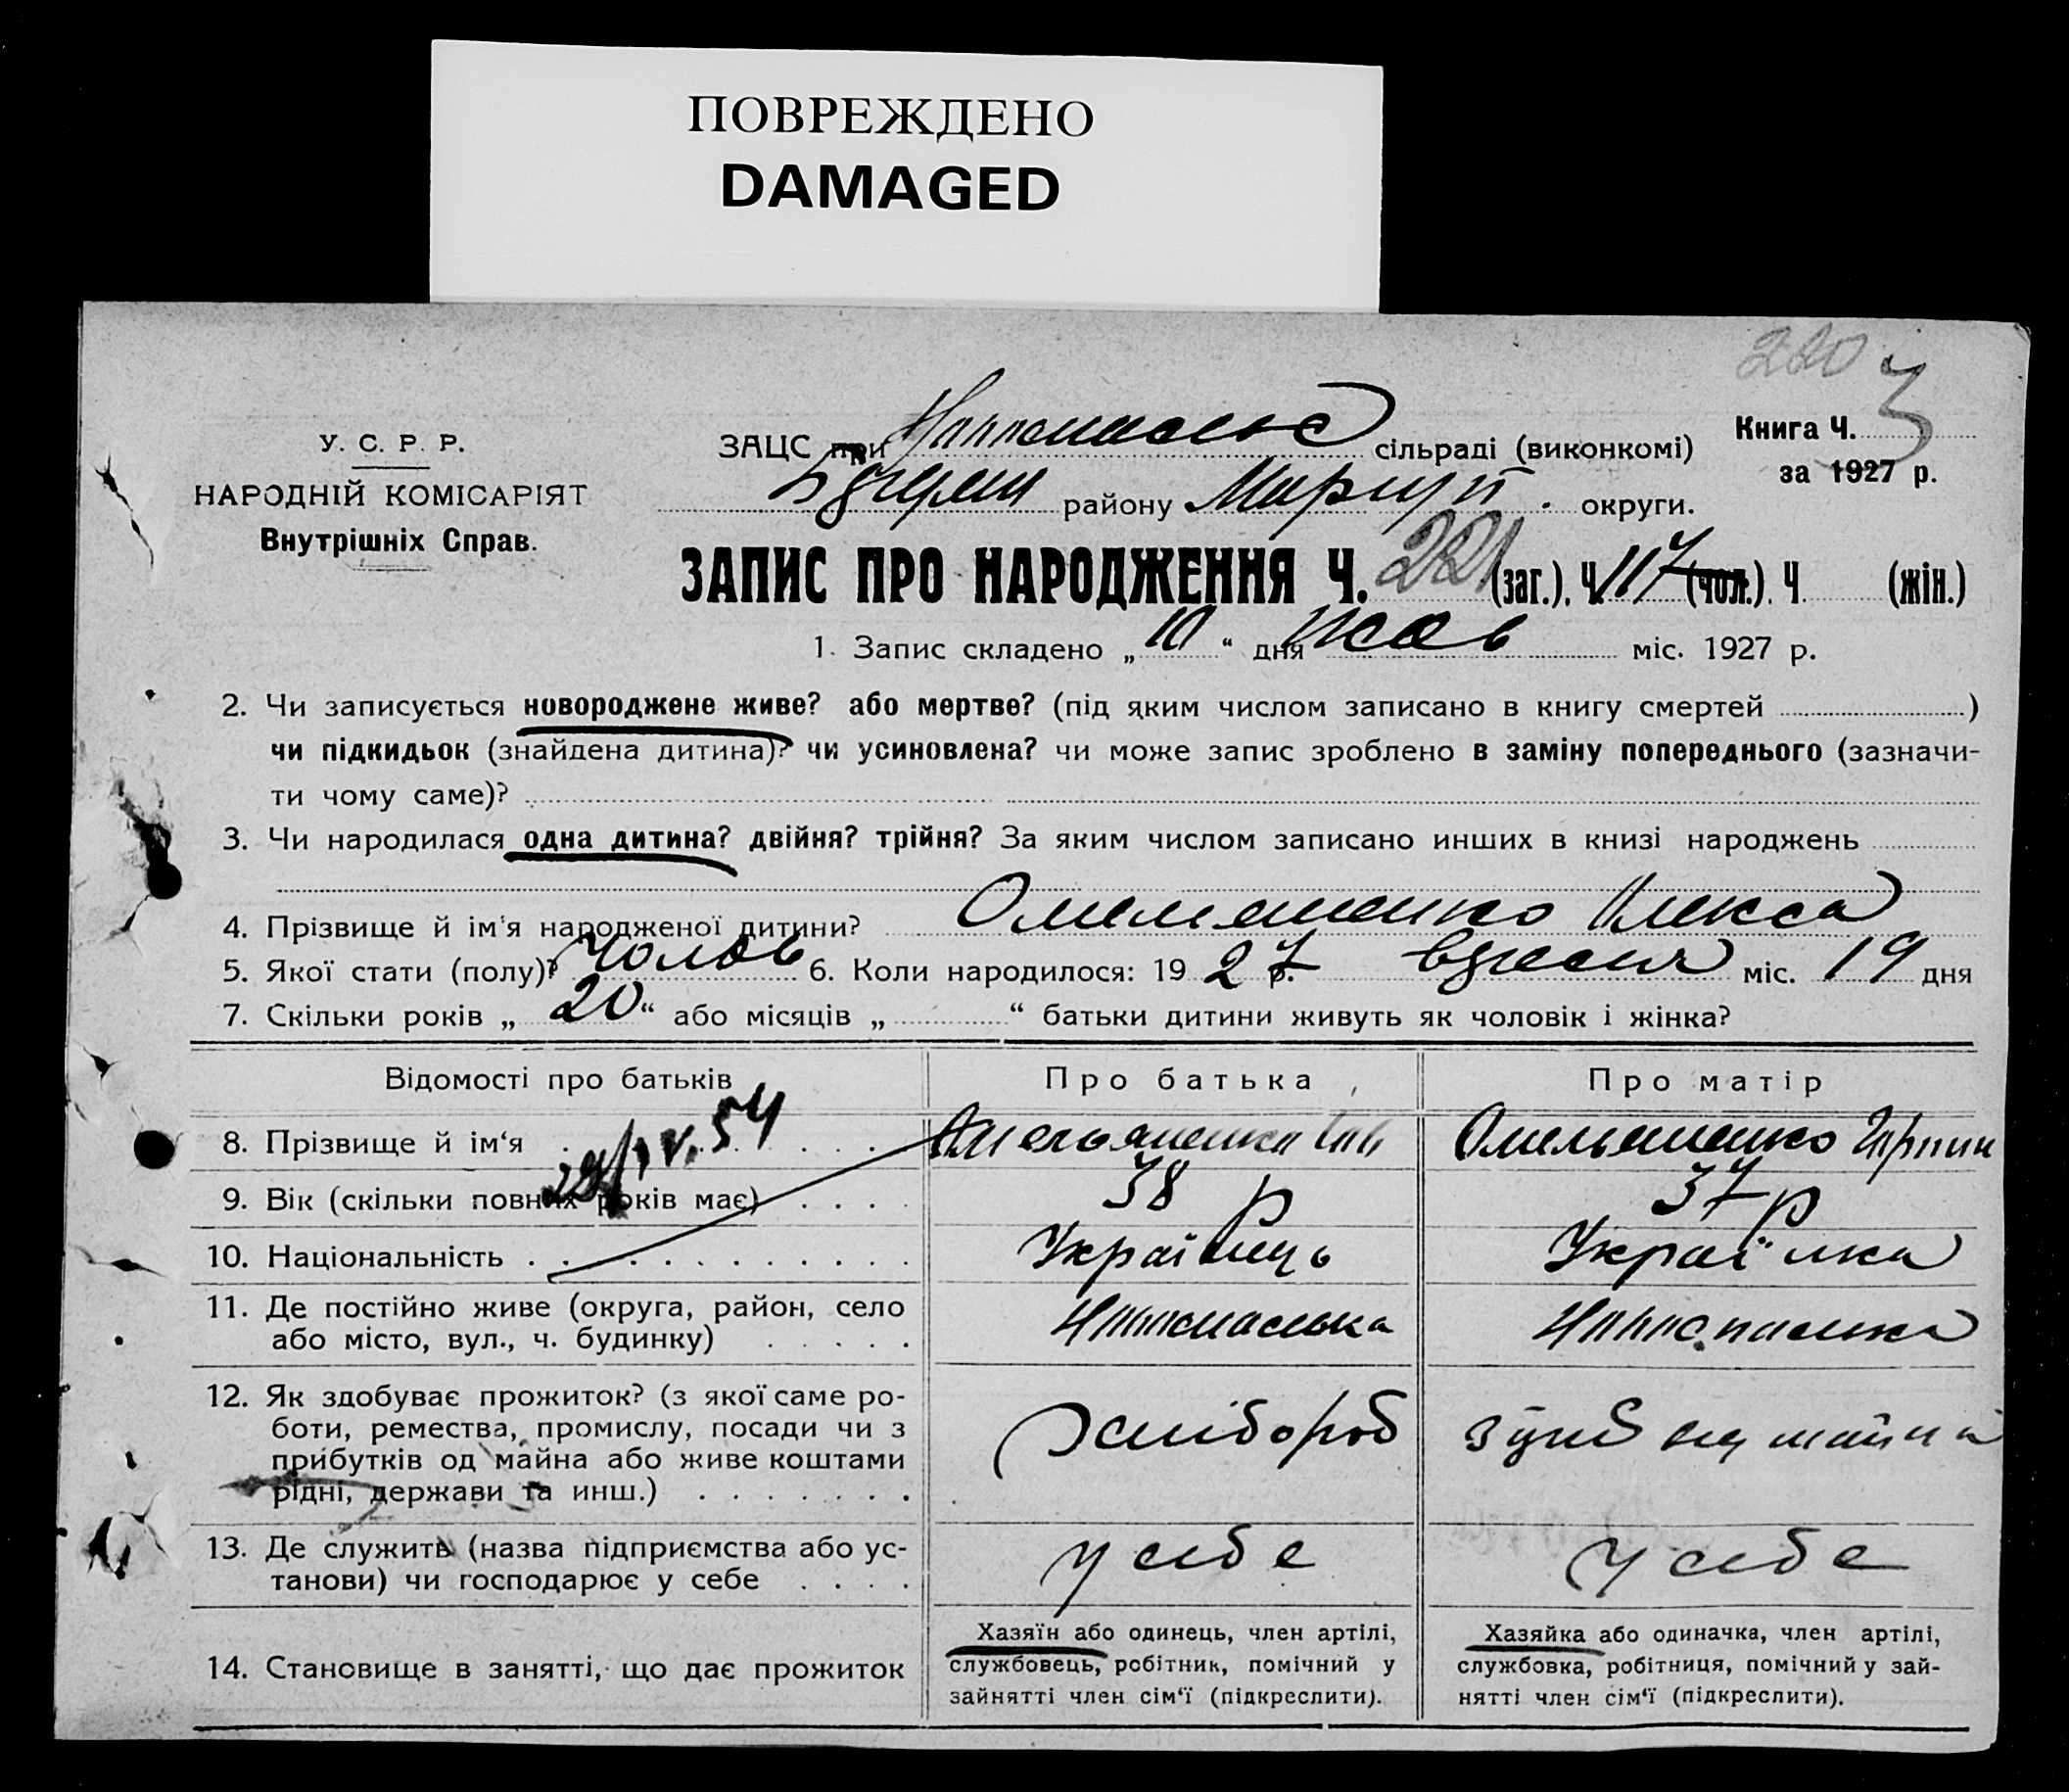 ПОВРЕЖДЕНО
DAMAGED
220
У. С. Р. Р.
НАРОДНІЙ КОМІСАРІЯТ
Внутрішніх Справ.
ЗАЦС при сільраді (виконкомі)
району Маріуп. округи.
Книга Ч. 3
за 1927 р.
ЗАПИС ПРО НАРОДЖЕННЯ Ч. 221 (заг.). Ч. 117 (чол.). Ч. (жін.)
1. Запис складено „ 10 “ дня жов міс. 1927 р.
2. Чи записується новороджене живе? або мертве? (під яким числом записано в книгу смертей )
чи підкидьок (знайдена дитина)? чи усиновлена? чи може запис зроблено в заміну попереднього (зазначи-
ти чому саме)?
3. Чи народилася одна дитина? двійня? трійня? За яким числом записано инших в книзі народжень
4. Прізвище й ім'я народженої дитини? Олекса
5. Якої стати (полу)? Чолов 6. Коли народилося: 19 27 р. вересня міс. 19 дня
7. Скільки років „ 20 “ або місяців „ “ батьки дитини живуть як чоловік і жінка?
Відомості про батьків Про батька Про матір
8. Прізвище й ім‘я
9. Вік (скільки повних років має) 38 р 37 р
10. Національність Українець Українка
11. Де постійно живе (округа, район, село
або місто, вул., ч. будинку)
12. Як здобуває прожиток? (з якої саме ро-
боти, ремества, промислу, посади чи з
прибутків од майна або живе коштами
рідні, держави та инш.) Хлібороб
13. Де служить (назва підприємства або ус-
танови) чи господарює у себе у себе у себе
14. Становище в занятті, що дає прожиток
Хазяїн або одинець, член артілі,
службовець, робітник, помічний у
зайнятті член сім‘ї (підкреслити).
Хазяйка або одиначка, член артілі,
службовка, робітниця, помічний у зай-
нятті член сім‘ї (підкреслити).